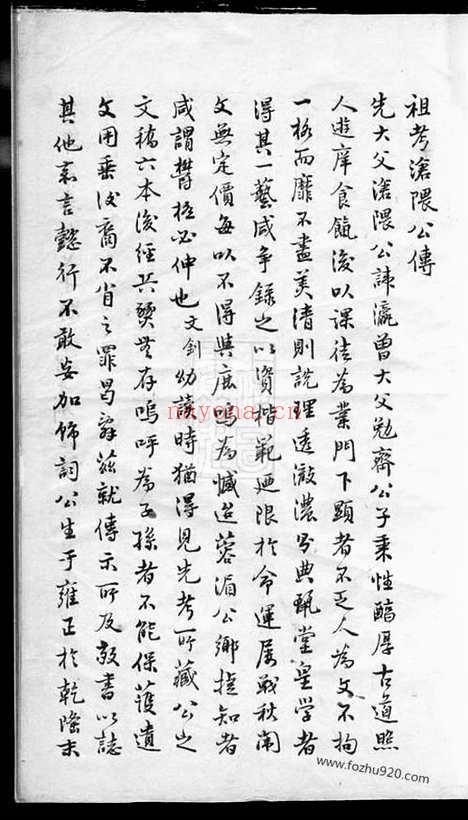 祖考滄隈公傳
先大父滄隈公諱瀛曾大父勉齋公子秉性醇厚古道照
人遊庠食餼後以課徒為業門下顯者不乏人為文不拘
一格而靡不盡美清則說理透澈濃則典甄堂皇學者
得其一藝咸爭錄之以資楷範廼限於命運屢戰秋闈
文無定價每以不得與鹿鳴為憾迨蓉湄公鄉捷知者
咸謂鬱極必伸也文劍幼讀時猶得見先考所藏公之
文稿六本後經兵燹無存嗚呼為子孫者不能保護遺
文用垂後裔不省之罪曷辭茲就傳示所及敬書以誌
其他嘉言懿行不敢妄加飾詞公生于雍正於乾隆末
nayona.cn
www.fozhu920.com